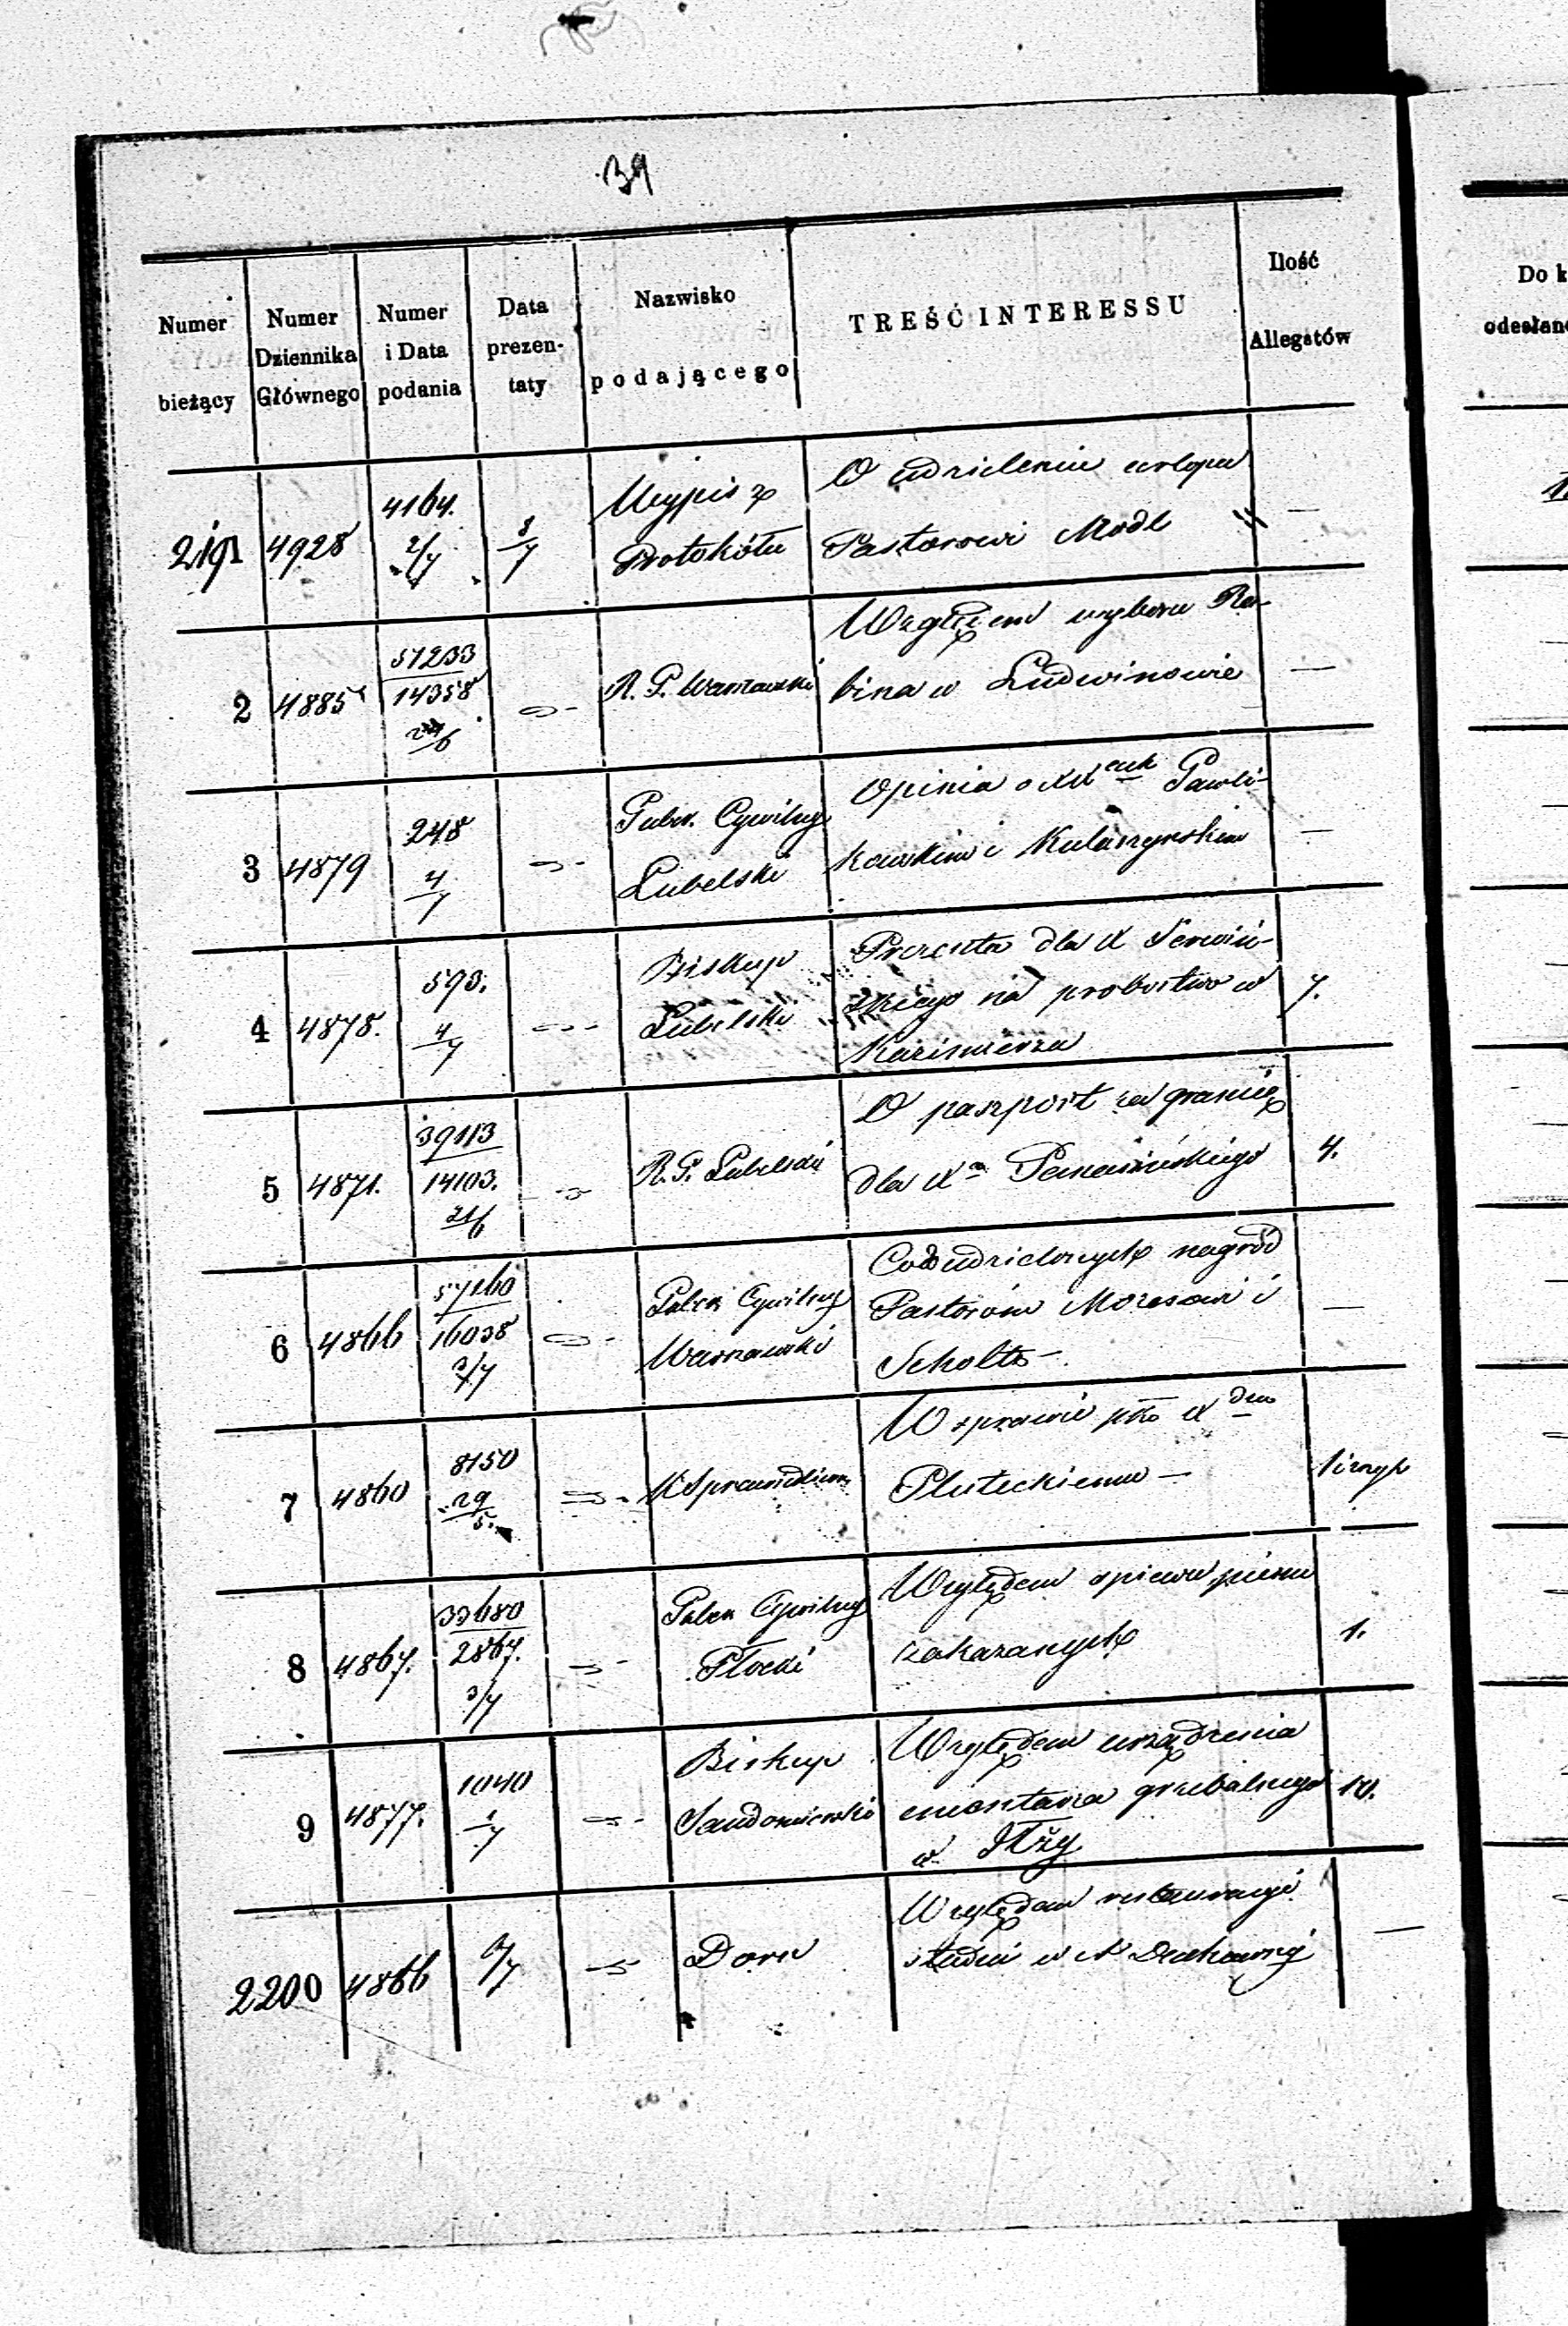 39
Numer bieżący
Numer Dziennika Głównego
Numer i Data podania
Data prezentaty
Nazwisko podającego
TREŚĆ INTERESSU
Ilość Allegatów
Do k
odesłan
2191 4928 4164. 2/7 8/7 Wypis z Protokółu
O udzieleniu urlopu
Pastorowi Modl
—
2 4885 51233 14358 R. G. Warszawski
Względem wyboru Ra-
bina w Ludwinowie
—
3 4879 248 4/7 Guber. Cywilny Lubelski
Opinia o XX Pawli-
kowskim i Kulaszyńskim
—
4 4878. 593. 4/7 Biskup Lubelski
Prezenta dla X
na probostwo w
Kazimierzu
7.
5 4871. 39113 14103. 21/6 R. G. Lubelski
O paszport za granicę
dla X
4.
6 4866 57160 16038 3/7 Guber Cywilny Warszawski
udzielonych nagród
Pastorom i
Scholtz —
—
7 4860 8150 29/5. K Sprawiedliw.
W sprawie X
Pluteckiemu —
1 zszyt
8 4867. 33680 2867. 3/7 Guber Cywilny Płocki
Względem śpiewu pieśni
zakazanych
1.
9 4877. 1040 1/7 Biskup Sandomierski
Względem urządzenia
cmentarza grzebalnego
w Iłży
10.
2200 4866 Dorn
Względem restauracyi
studni w A Duchownej
—